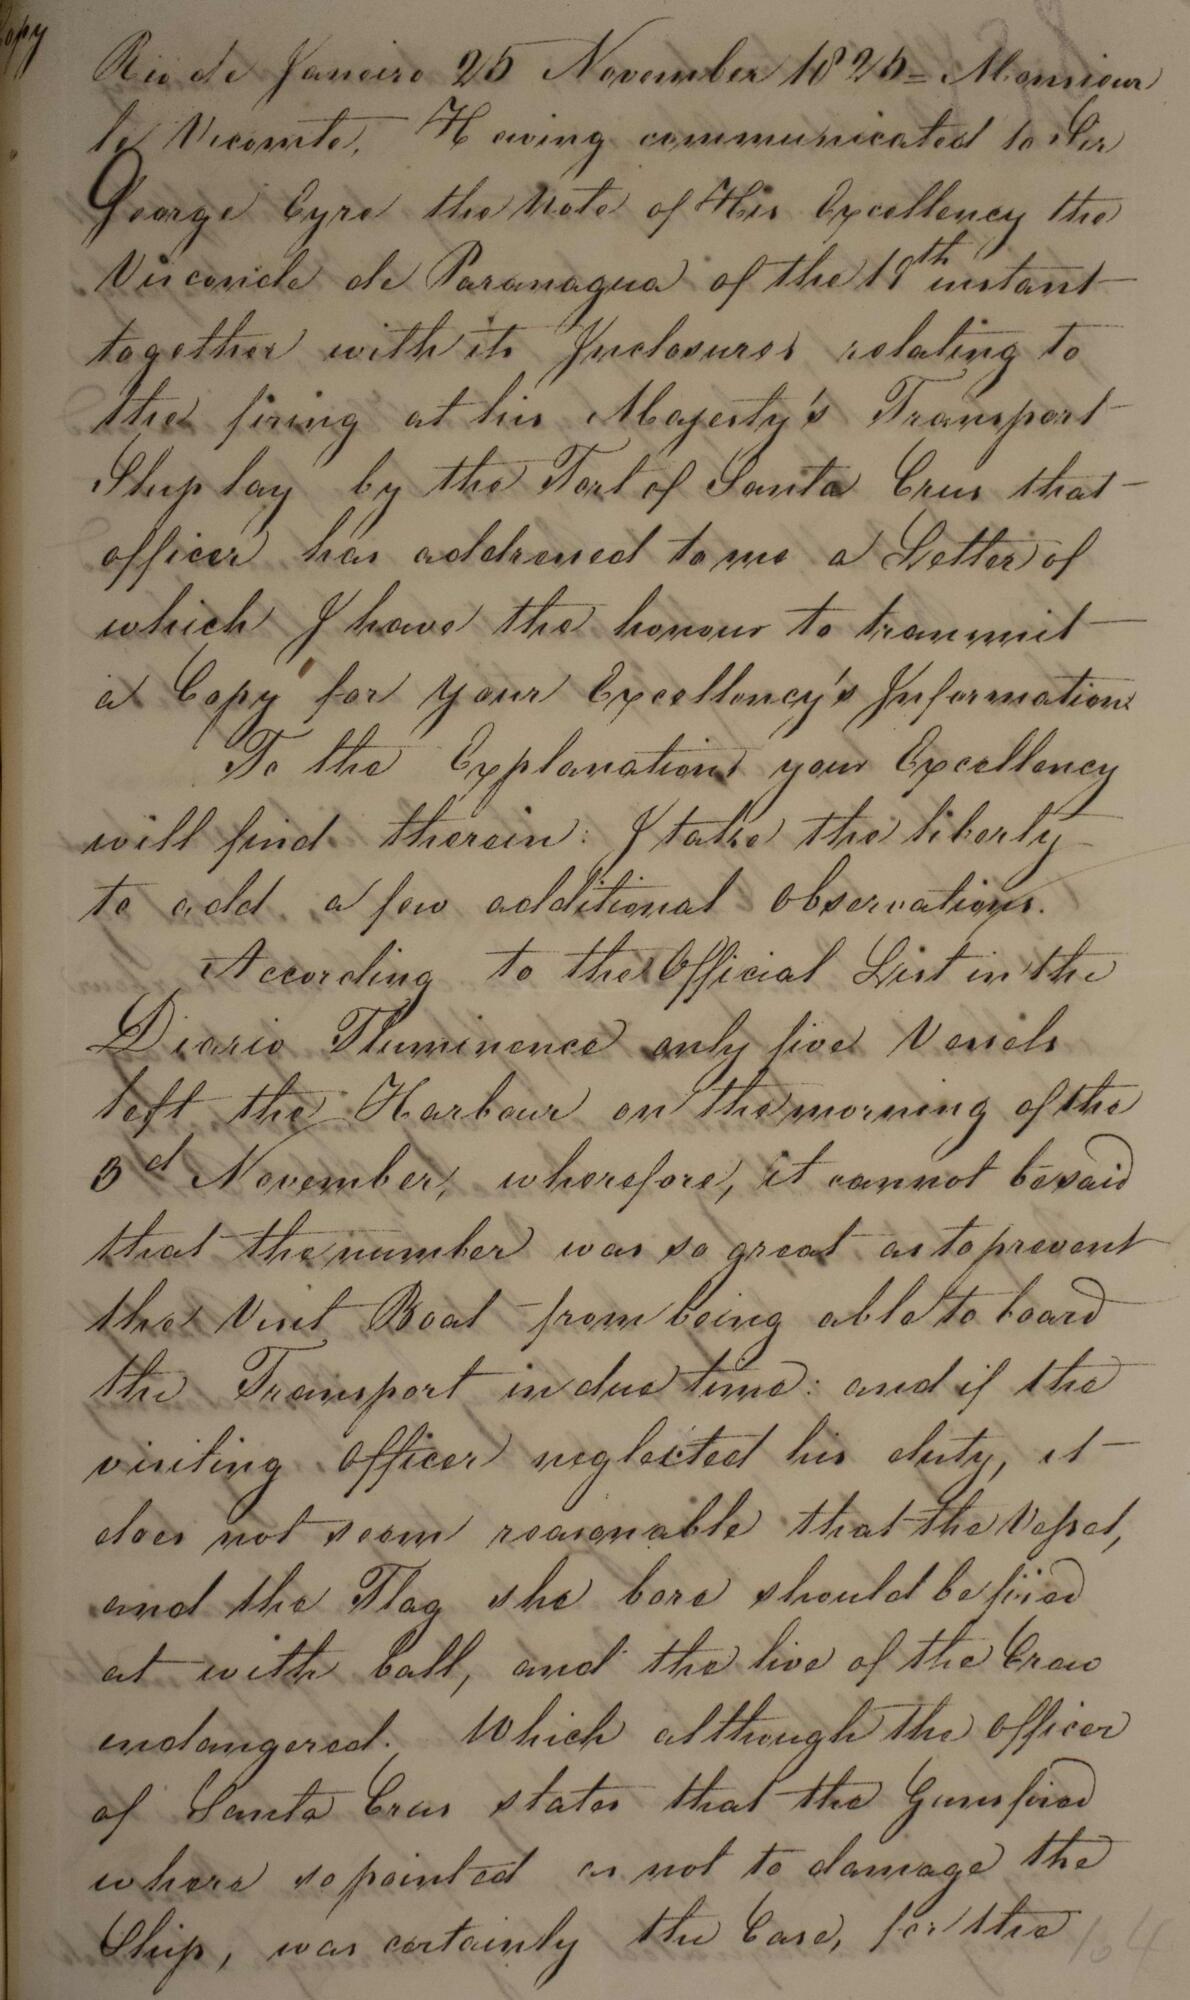 Copy
Rio de Janeiro 25 November 1825 = Monsieur
le Vicomte, Having communicated to Sir
George Eyre the Note of His Excellency the
Visconde de Paranagua of the 19th instant
together with its Inclosures relating to
the firing at his Majesty's Transport
Ship lay by the Fort of Santa Crus that
officer has addressed to me a Letter of
which I have the honour to transmit
a Copy for your Excellency's Information.
To the Explanations your Excellency
will find therein: I take the liberty
to add a few additional observations.
According to the Official List in the
Diario Fluminence only five Vessels
left the Harbour on the morning of the
3d November, wherefore, it cannot be said
that the number was so great as to prevent
the Visit Boat from being able to board
the Transport in due time: and if the
visiting officer neglected his duty, it
does not seem reasonable that the Vessel,
and the Flag she bore should be fired
at with ball, and the live of the Crew
endangered. Which although the officer
of Santa Crus states that the Guns fired
where so pointed as not to damage the
Ship, was certainly the Case, for the
104